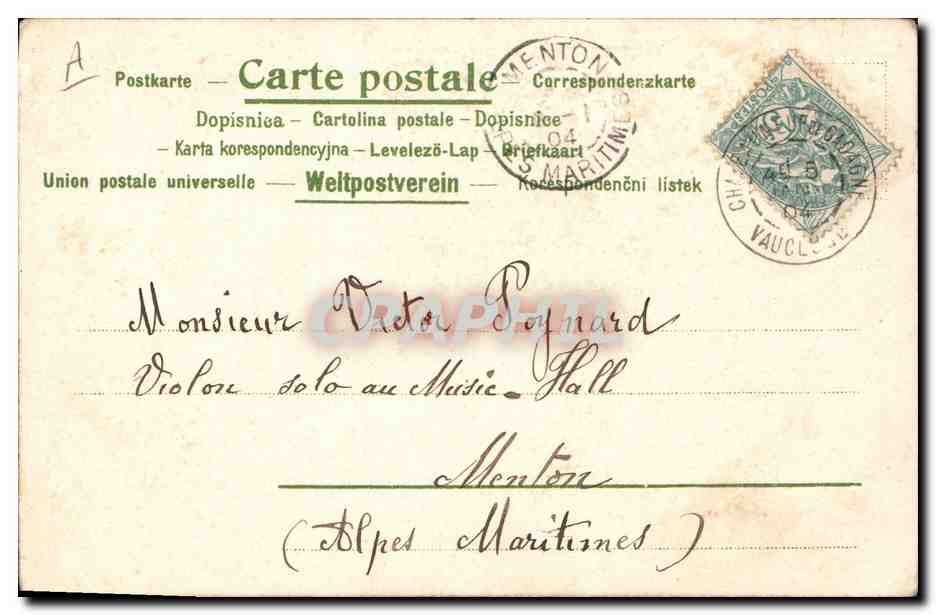 A
Postkarte — Carte postale — Correspondenzkarte
Dopisnica — Cartolina postale — Dopisnice
— Karta korespondencyjna — Levelező-Lap — Briefkaart —
Union postale universelle — Weltpostverein — Korespondenční listek
MENTON
04
MARITIMES
CHATEAUNEUF-DE-GADAGNE
04
VAUCLUSE
Monsieur Victor Poynard
Violon solo au Music-Hall
Menton
(Alpes Maritimes)
CPAPHIL